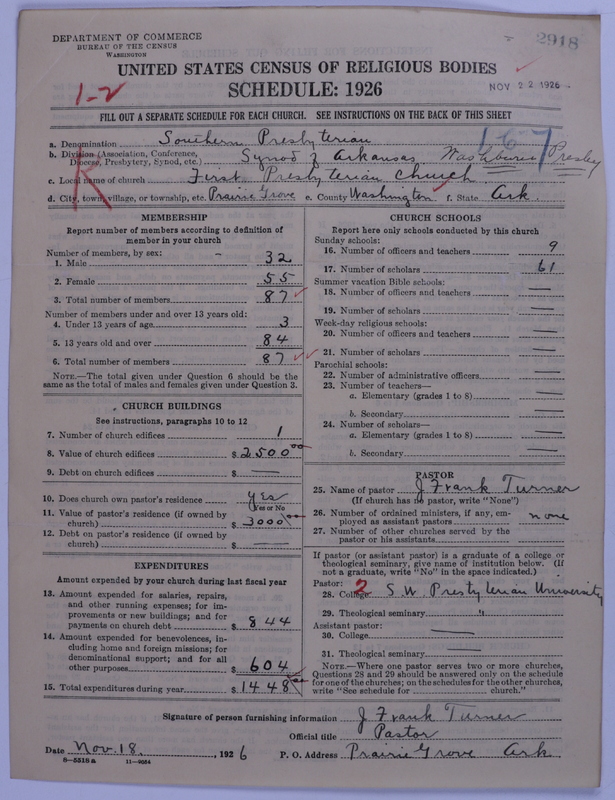 DEPARTMENT OF COMMERCE
BUREAU OF THE CENSUS
WASHINGTON
2918
UNITED STATES CENSUS OF RELIGIOUS BODIES
SCHEDULE: 1926
NOV 22 1926
1-2
FILL OUT A SEPARATE SCHEDULE FOR EACH CHURCH. SEE INSTRUCTIONS ON THE BACK OF THIS SHEET
167
R
a. Denomination Southern Presbyterian
b. Division (Association, Conference, Diocese, Presbytery, Synod, etc.) Synod of Arkansas Washburne Presby
c. Local name of church First Presbyterian Church
d. City, town, village, or township, etc. Prairie Grove e. County Washington f. State Ark
MEMBERSHIP
Report number of members according to definition of
member in your church
Number of members, by sex:
1. Male 32
2. Female 55
3. Total number of members 87
Number of members under and over 13 years old:
4. Under 13 years of age 3
5. 13 years old and over 84
6. Total number of members 87
NOTE.—The total given under Question 6 should be the
same as the total of males and females given under Question 3.
CHURCH BUILDINGS
See instructions, paragraphs 10 to 12
7. Number of church edifices 1
8. Value of church edifices $ 2500 00
9. Debt on church edifices $ —
10. Does church own pastor's residence yes
Yes or No
11. Value of pastor's residence (if owned by
church) $ 3000 00
12. Debt on pastor's residence (if owned by
church) $ —
EXPENDITURES
Amount expended by church during last fiscal year
13. Amount expended for salaries, repairs,
and other running expenses; for im-
provements or new buildings; and for
payments on church debt $ 844
14. Amount expended for benevolences, in-
cluding home and foreign missions; for
denominational support; and for all
other purposes $ 604
15. Total expenditures during year $ 1448
CHURCH SCHOOLS
Report here only schools conducted by this church
Sunday schools:
16. Number of officers and teachers 9
17. Number of scholars 61
Summer vacation Bible schools:
18. Number of officers and teachers —
19. Number of scholars —
Week-day religious schools:
20. Number of officers and teachers —
21. Number of scholars —
Parochial schools:
22. Number of administrative officers —
23. Number of teachers—
a. Elementary (grades 1 to 8) —
b. Secondary —
24. Number of scholars—
a. Elementary (grades 1 to 8) —
b. Secondary —
PASTOR
25. Name of pastor J Frank Turner
(If church has no pastor, write "None")
26. Number of ordained ministers, if any, em-
ployed as assistant pastors none
27. Number of other churches served by the
pastor or his assistants
If pastor (or assistant pastor) is a graduate of a college or
theological seminary, give name of institution below. (If
not a graduate, write "No" in the space indicated.)
Pastor: 2
28. College S. W. Presbyterian University
29. Theological seminary "
Assistant pastor:
30. College —
31. Theological seminary —
NOTE.—Where one pastor serves two or more churches,
Questions 28 and 29 should be answered only on the schedule
for one of the churches; on the schedules for the other churches,
write "See schedule for church."
Signature of person furnishing information J Frank Turner
Official title Pastor
Date Nov. 18, 1926 P. O. Address Prairie Grove Ark
8—5518a 11—9054